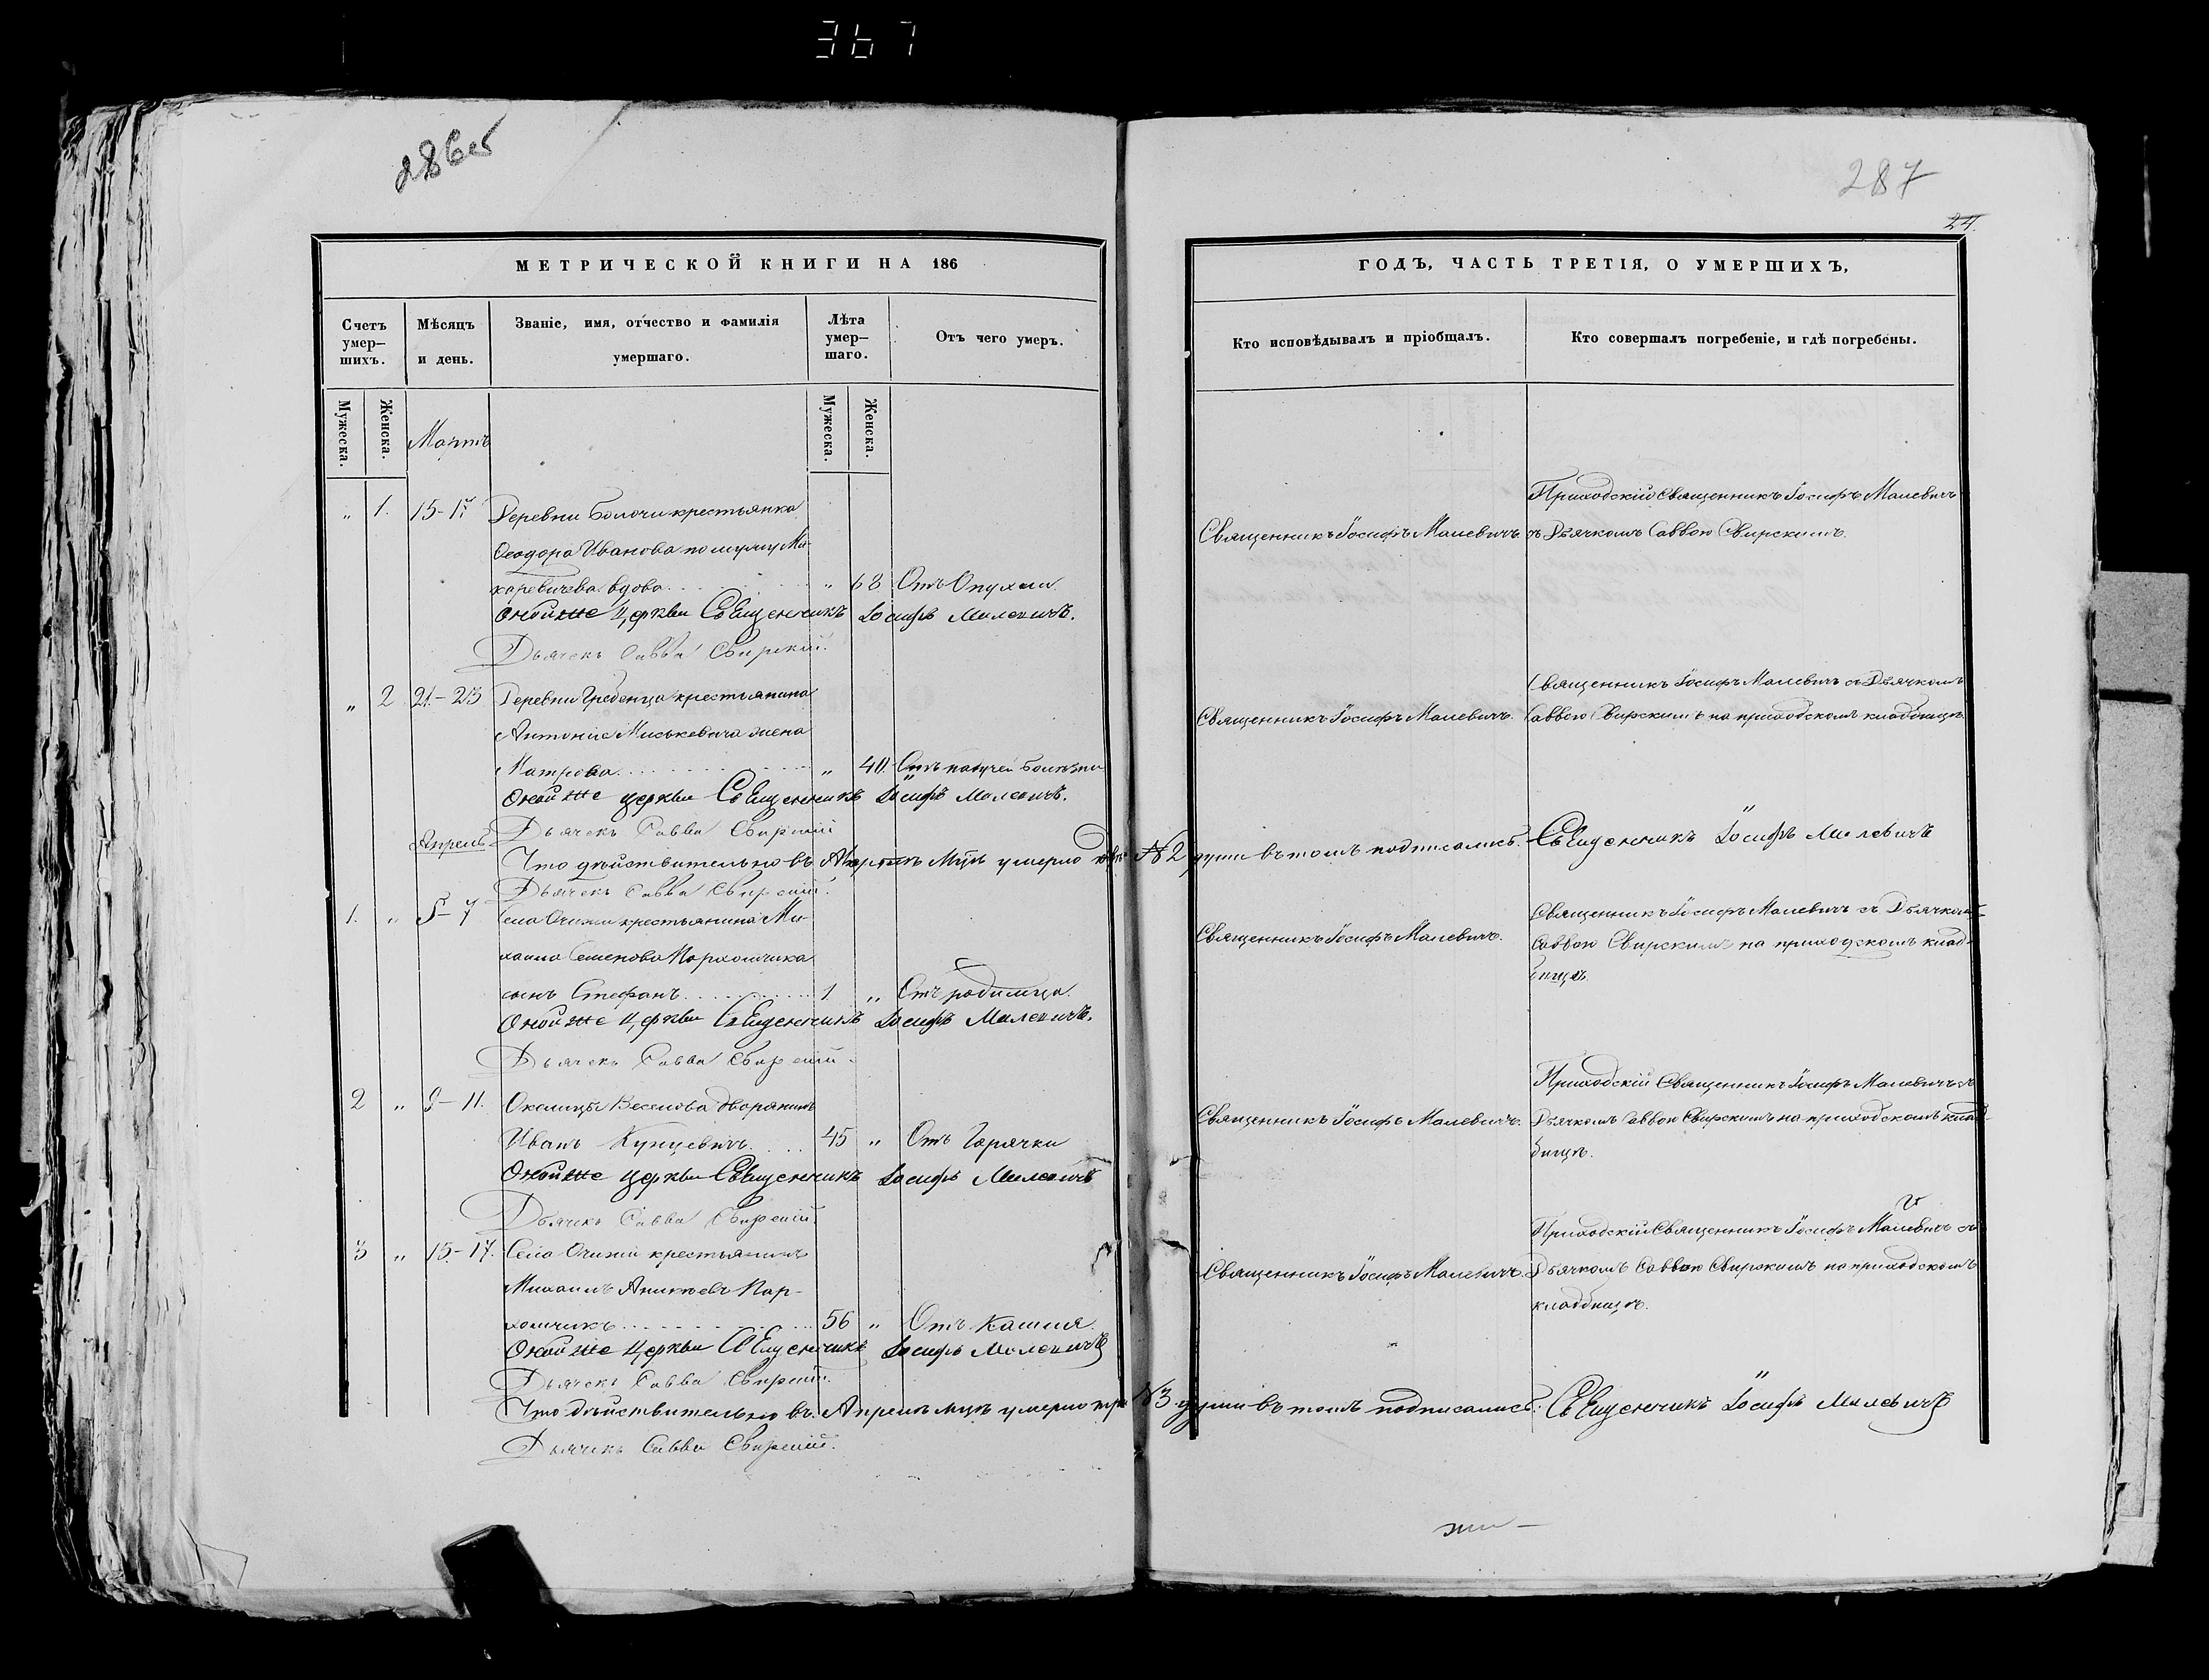 367
286об
287
24.
МЕТРИЧЕСКОЙ КНИГИ НА 186
Счетъ умер-шихъ.
Мѣсяцъ и день.
Званіе, имя, отчество и фамилія умершаго.
Лѣта умер-шаго.
Отъ чего умеръ.
Мужеска.
Женска.
Мужеска.
Женска.
Мартъ
„ 1. 15-17 Деревни Болочи крестьянка
Ѳеодора Иванова по мужу Ма-
каревичева вдова „ 68 Отъ Опухоли.
Оной же Церкви Священникъ Іосифъ Малевичъ.
Дьячекъ Савва Свирскій.
„ 2 21-23 Деревни Гребенца крестьянина
Антонія Миськевича жена
Матрона „ 40. Отъ падучей болѣзни
Оной же церкви Священникъ Іосифъ Малевичъ.
Дьячекъ Савва Свирскій
Апрель
Что дѣйствительно въ Мцѣ умерло двѣ
Дьячекъ Савва Свирскій.
1. „ 5-7 Села крестьянина Ми-
хаила Семенова Пархомчика
сынъ Стефанъ 1 „ Отъ родимца.
Оной же Церкви Священникъ Іосифъ Малевичъ.
Дьячекъ Савва Свирскій.
2 „ 9-11. Околицы Веселова дворянинъ
Иванъ Кунцевичъ 45 „ Отъ Горячки
Оной же церкви Священникъ Іосифъ Малевичъ
Дьячекъ Савва Свирскій.
3 „ 15-17. Села крестьянинъ
Михаилъ Аникѣевъ Пар-
хомчикъ 56 „ Отъ Кашля.
Оной же Церкви Священникъ Іосифъ Малевичъ
Дьячекъ Савва Свирскій.
Что дѣйствительно въ Апрелѣ мцѣ умерло три
Дьячекъ Савва Свирскій.
ГОДЪ, ЧАСТЬ ТРЕТІЯ, О УМЕРШИХЪ,
Кто исповѣдывалъ и пріобщалъ.
Кто совершалъ погребеніе, и гдѣ погребены.
Приходскій Священникъ Іосифъ Малевичъ
Священникъ Іосифъ Малевичъ. съ Дьячкомъ Саввою Свирскимъ.
Священникъ Іосифъ Малевичъ съ Дьячкомъ
Священникъ Іосифъ Малевичъ. Саввою Свирскимъ на приходскомъ кладбищѣ.
№ 2 души въ томъ подписались. Священникъ Іосифъ Малевичъ
Священникъ Іосифъ Малевичъ съ Дьячкомъ
Священникъ Іосифъ Малевичъ. Саввою Свирскимъ на приходскомъ клад-
бищѣ.
Приходскій Священникъ Іосифъ Малевичъ съ
Священникъ Іосифъ Малевичъ. Дьячкомъ Саввою Свирскимъ на приходскомъ клад-
бищѣ.
Приходскій Священникъ Іосифъ Малевичъ съ
Священникъ Іосифъ Малевичъ. Дьячкомъ Саввою Свирскимъ на приходскомъ
кладбищѣ.
№ 3 души въ томъ подписались: Священникъ Іосифъ Малевичъ